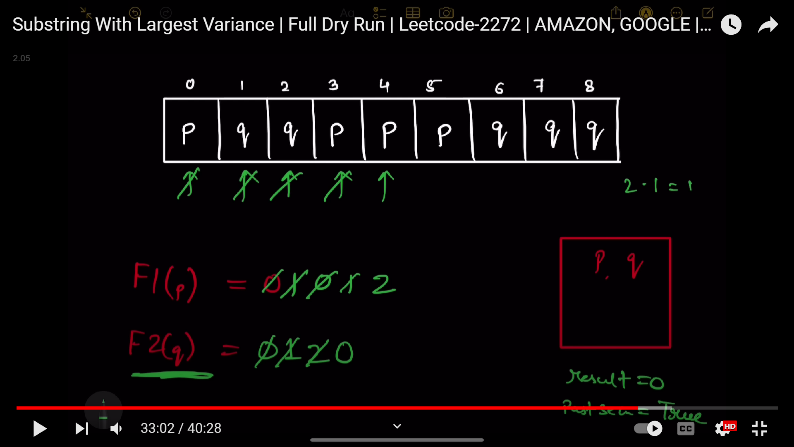 Substring With Largest Variance | Full Dry Run | Leetcode-2272 | AMAZON, GOOGLE |...
2.05
0 1 2 3 4 5 6 7 8
p q q p p p q q q
2 - 1 = 1
P, q
F1(p) = 0 1 0 1 2
F2(q) = 0 1 2 0
result = 0
Past seen = True
33:02 / 40:28
CC
HD